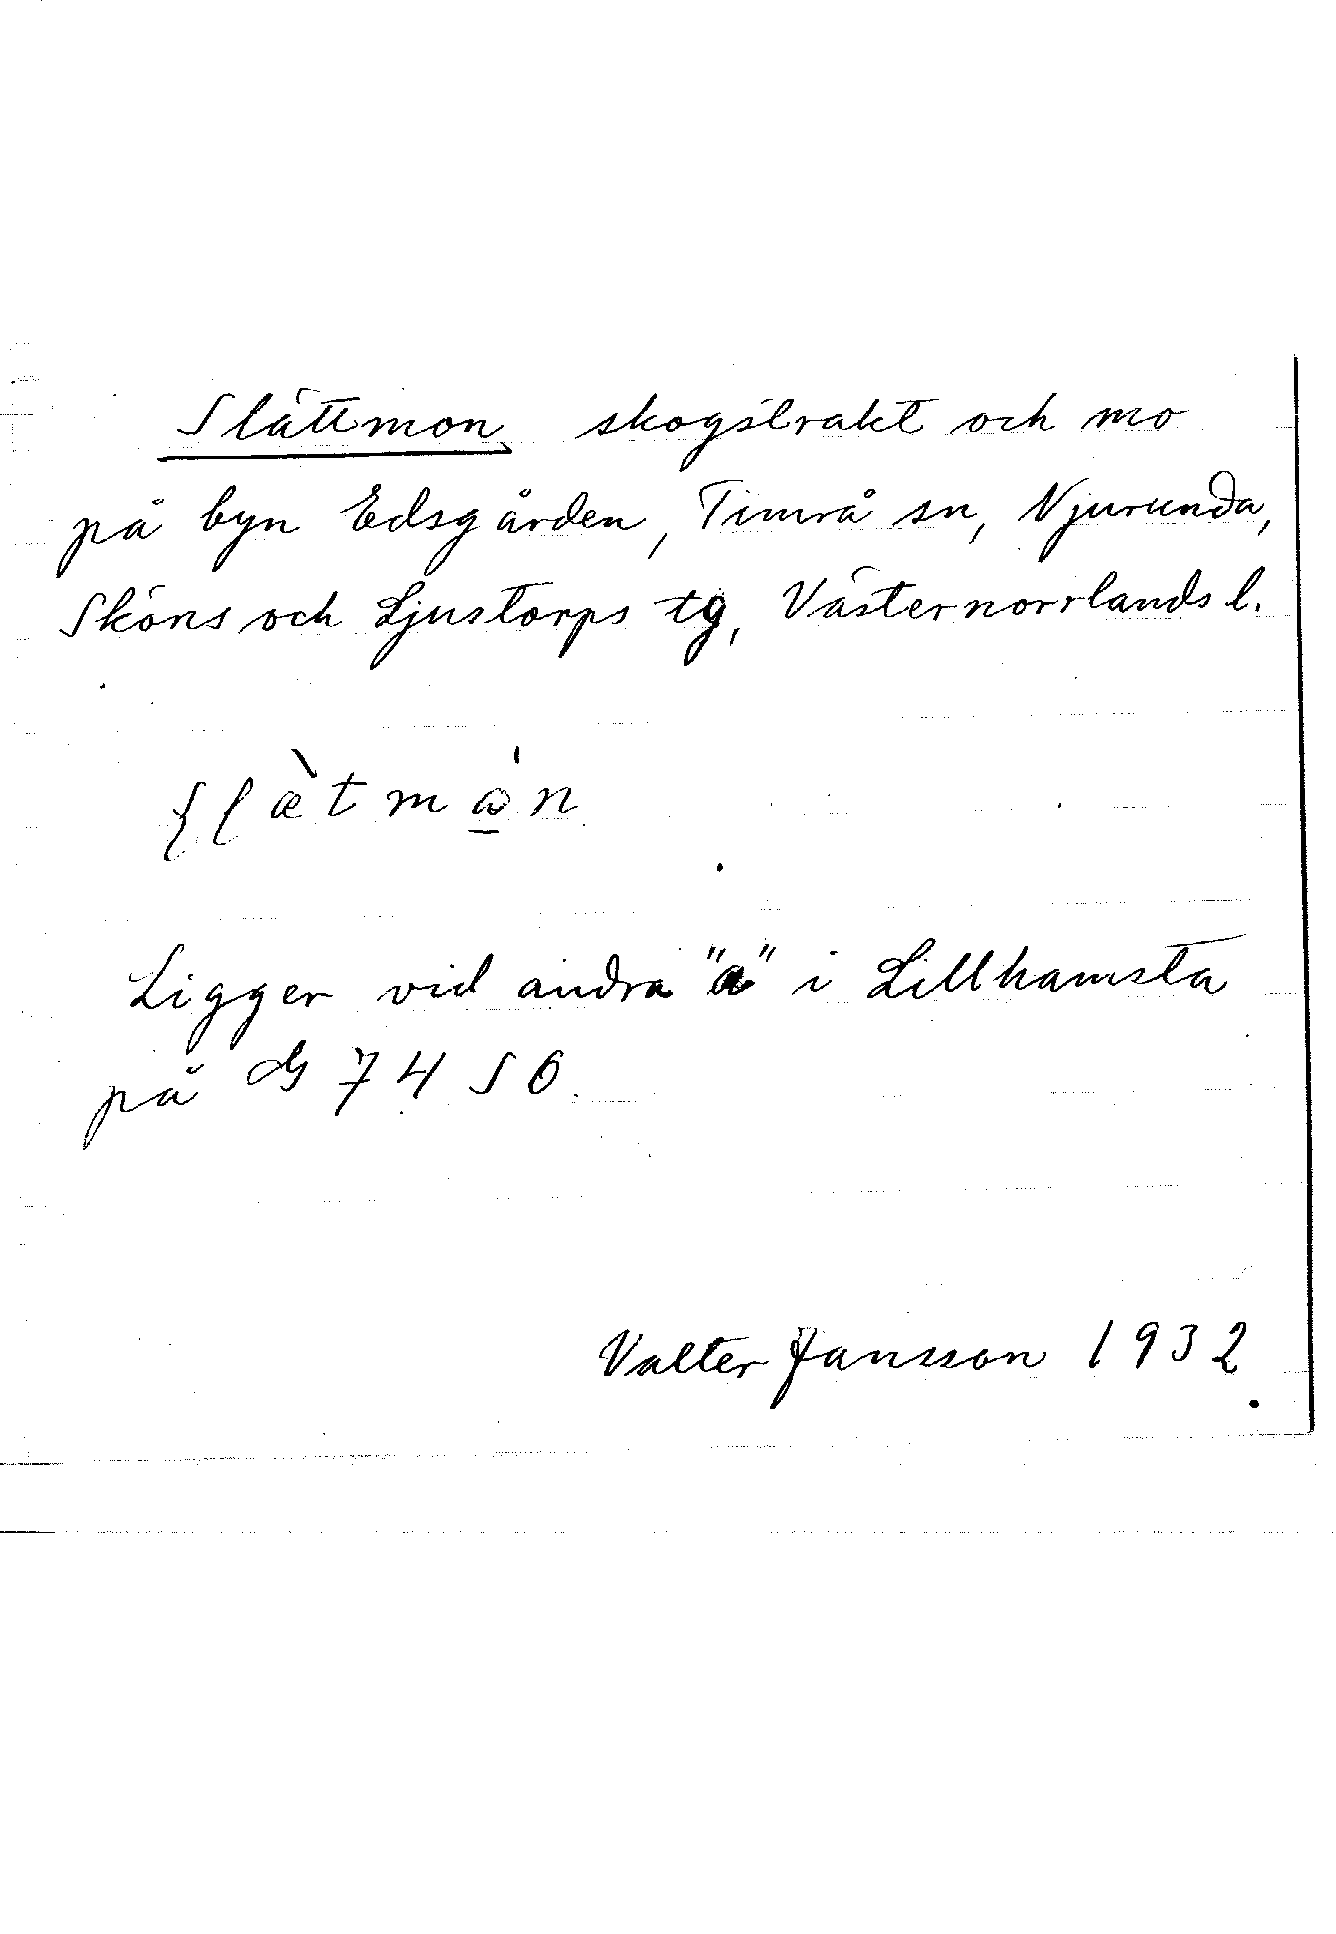 Slättmon, skogstrakt och mo
på byn Edsgården, Timrå sn, Njurunda,
Sköns och Ljustorps tg, Västernorrlands l.
Ligger vid andra "a" i Lillhamsta
på G 74 SO.
Valter Jansson 1932.